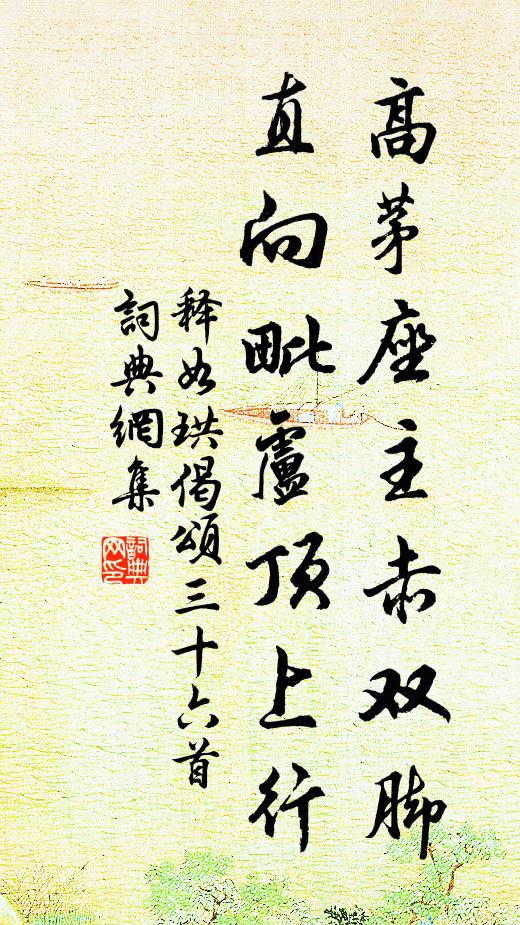 高茅座主赤双脚
直向毗盧顶上行
释如珙偈颂三十六首
詞典網集
詞典网印